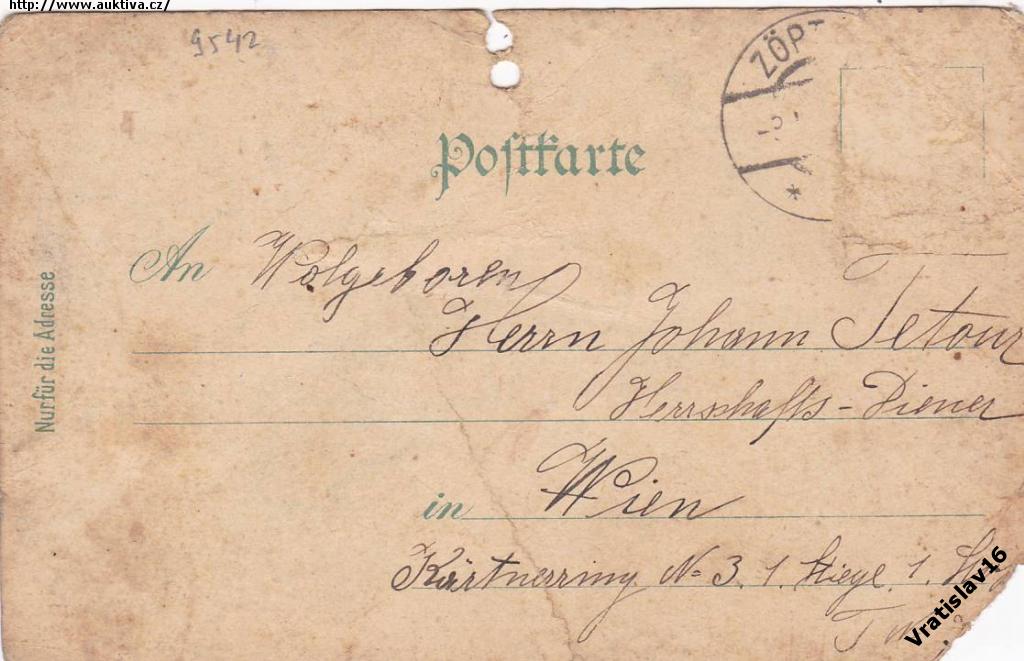 http://www.auktiva.cz/
9542
ZÖPT
Postkarte
An Wolgeboren
Herrn Johann Tetour
Herrschafts-Diener
in Wien
Kärtnerring No 3. 1. Stiege 1.
Nur für die Adresse
Vratislav16